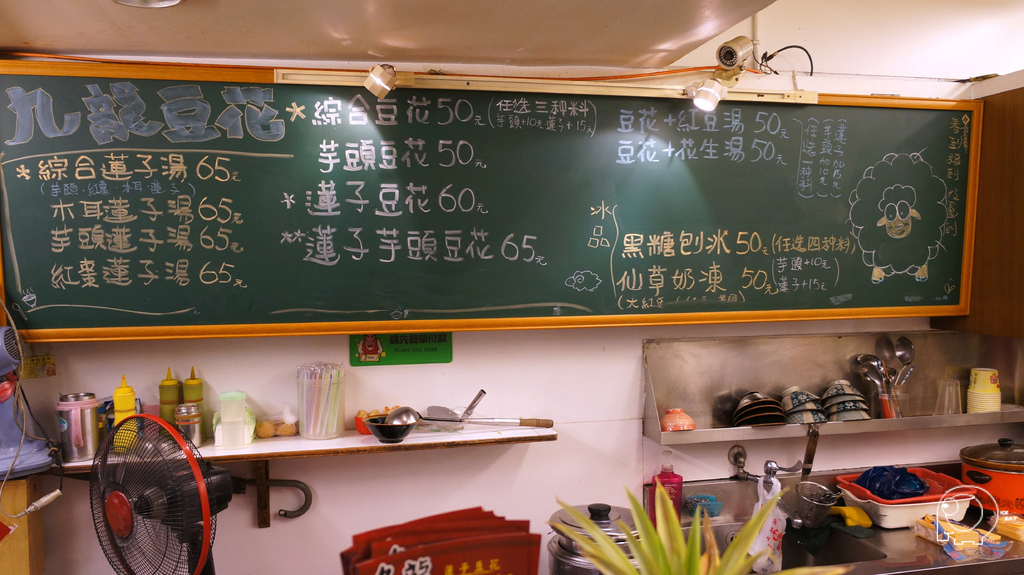 九龍豆花
*綜合蓮子湯 65元
木耳蓮子湯 65元
芋頭蓮子湯 65元
紅棗蓮子湯 65元
*綜合豆花 50元 (任選三種料)
芋頭+10元 蓮子+15元
芋頭豆花 50元
*蓮子豆花 60元
**蓮子芋頭豆花 65元
豆花+紅豆湯 50元
豆花+花生湯 50元
(任選一種料)
冰品
黑糖刨冰 50元 (任選四種料)
芋頭+10元
蓮子+15元
仙草奶凍 50元
九龍
蓮子豆花